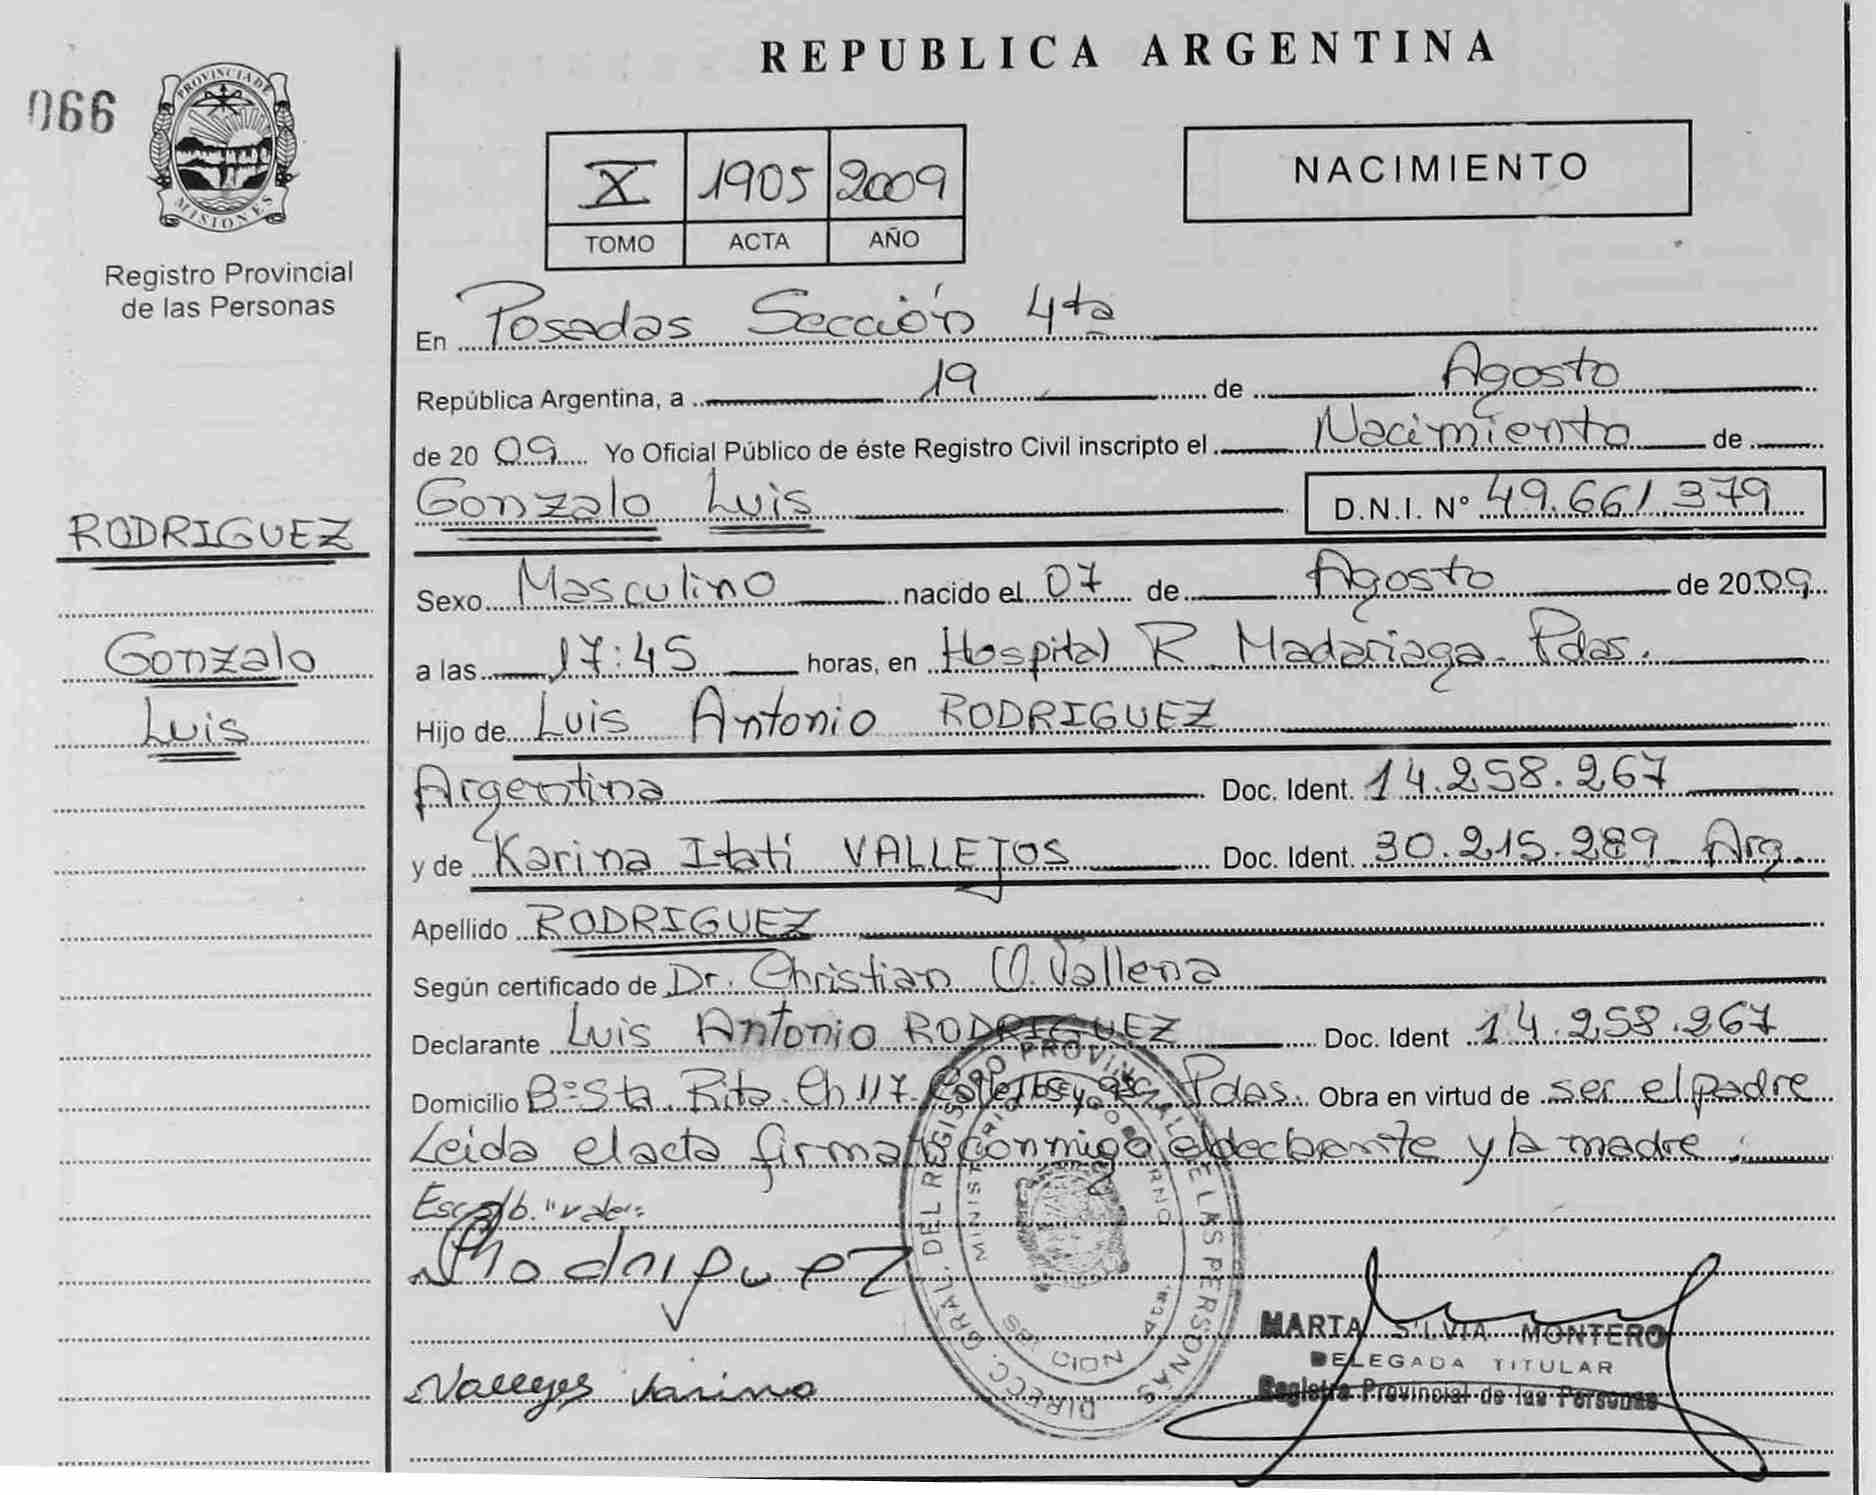 REPUBLICA ARGENTINA
066
PROVINCIA DE
MISIONES
Registro Provincial
de las Personas
X 1905 2009
TOMO ACTA AÑO
NACIMIENTO
En Posadas Sección 4ta
República Argentina, a 19 de Agosto
de 20 09 Yo Oficial Público de éste Registro Civil inscripto el Nacimiento de
Gonzalo Luis D.N.I. Nº 49.661.379
RODRIGUEZ
Gonzalo
Luis
Sexo Masculino nacido el 07 de Agosto de 20 09
a las 17:45 horas, en Hospital R. Madariaga. Pdas.
Hijo de Luis Antonio RODRIGUEZ
Argentina Doc. Ident. 14.258.267
y de Karina Itatí VALLEJOS Doc. Ident. 30.215.289 Arg.
Apellido RODRIGUEZ
Según certificado de Dr. Christian O. Vallena
Declarante Luis Antonio RODRIGUEZ Doc. Ident 14.258.267
Domicilio Bº Sta. Rita. Ch 117. Pdas. Obra en virtud de ser el padre
Leida el acta firman conmigo el declarante y la madre.
"vale"
Rodriguez
Vallejos Karina
DIRECC. GRAL. DEL REGISTRO PROVINCIAL DE LAS PERSONAS
MINISTERIO GOBIERNO
4ta.
MARTA SILVIA MONTERO
DELEGADA TITULAR
Registro Provincial de las Personas